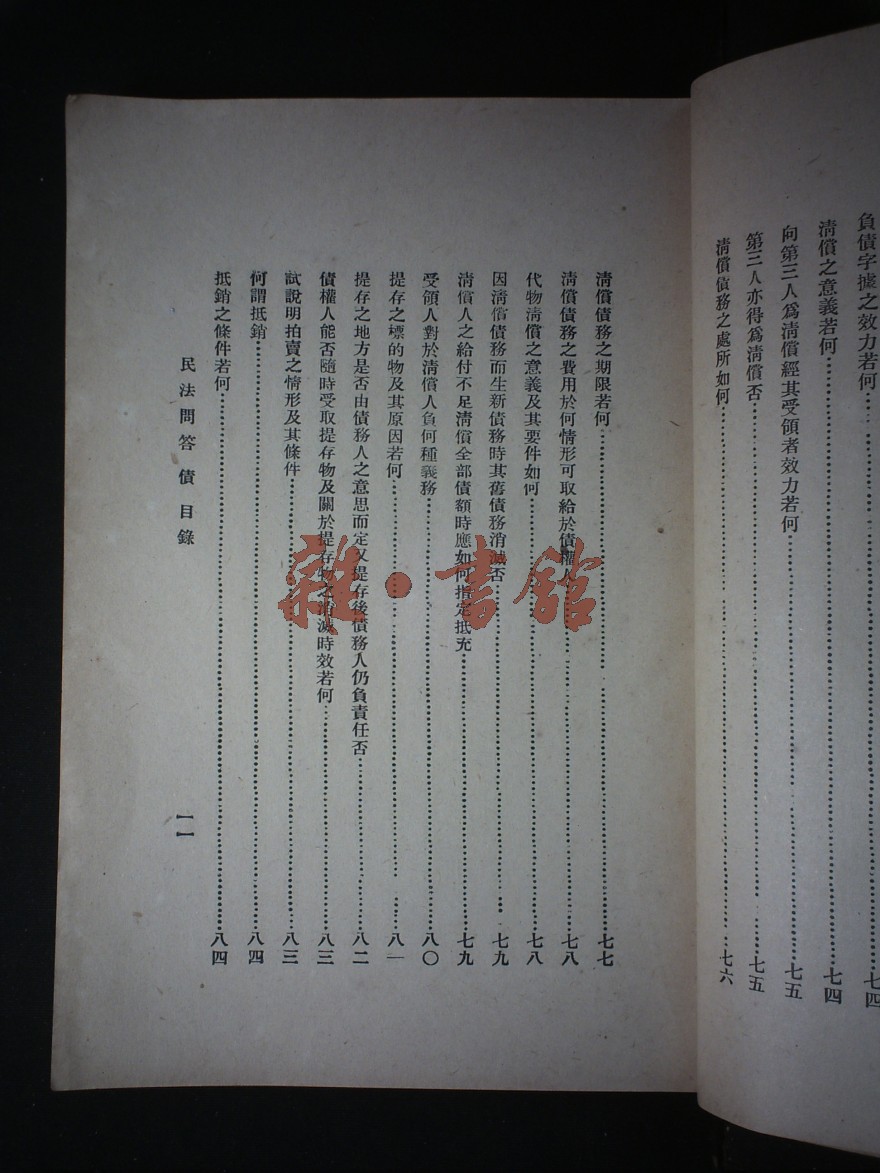 負債字據之效力若何……七四
清償之意義若何……七四
向第三人爲清償經其受領者效力若何……七五
第三人亦得爲清償否……七五
清償債務之處所如何……七六
清償債務之期限若何……七七
清償債務之費用於何情形可取給於債權人……七八
代物清償之意義及其要件如何……七八
因清償債務而生新債務時其舊債務消滅否……七九
清償人之給付不足清償全部債額時應如何指定抵充……七九
受領人對於清償人負何種義務……八〇
提存之標的物及其原因若何……八一
提存之地方是否由債務人之意思而定又提存後債務人仍負責任否……八二
債權人能否隨時受取提存物及關於提存物之消滅時效若何……八三
試說明拍賣之情形及其條件……八三
何謂抵銷……八四
抵銷之條件若何……八四
民法問答 債 目錄
一一
雜·書館